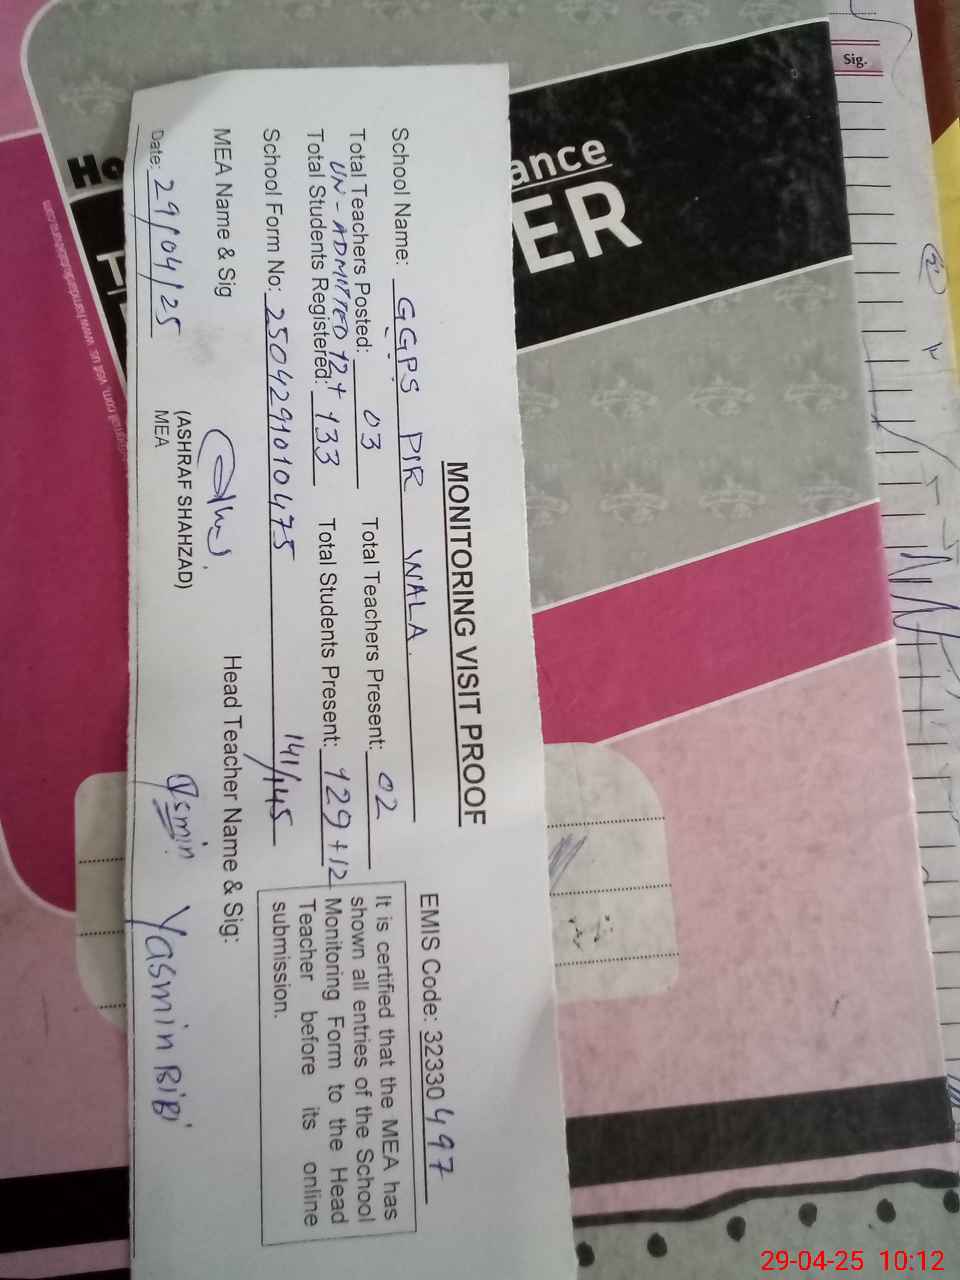 MONITORING VISIT PROOF
School Name: GGPS PIR WALA.
EMIS Code: 32330497
Total Teachers Posted: 03
Total Teachers Present: 02
UN-ADMITTED 12+
Total Students Registered: 133
Total Students Present: 129+12
School Form No: 2504291010475
141/145
It is certified that the MEA has
shown all entries of the School
Monitoring Form to the Head
Teacher before its online
submission.
MEA Name & Sig
(ASHRAF SHAHZAD)
MEA
Head Teacher Name & Sig:
Yasmin BiBi
Date: 29/04/25
ance
ER
Sig.
29-04-25 10:12